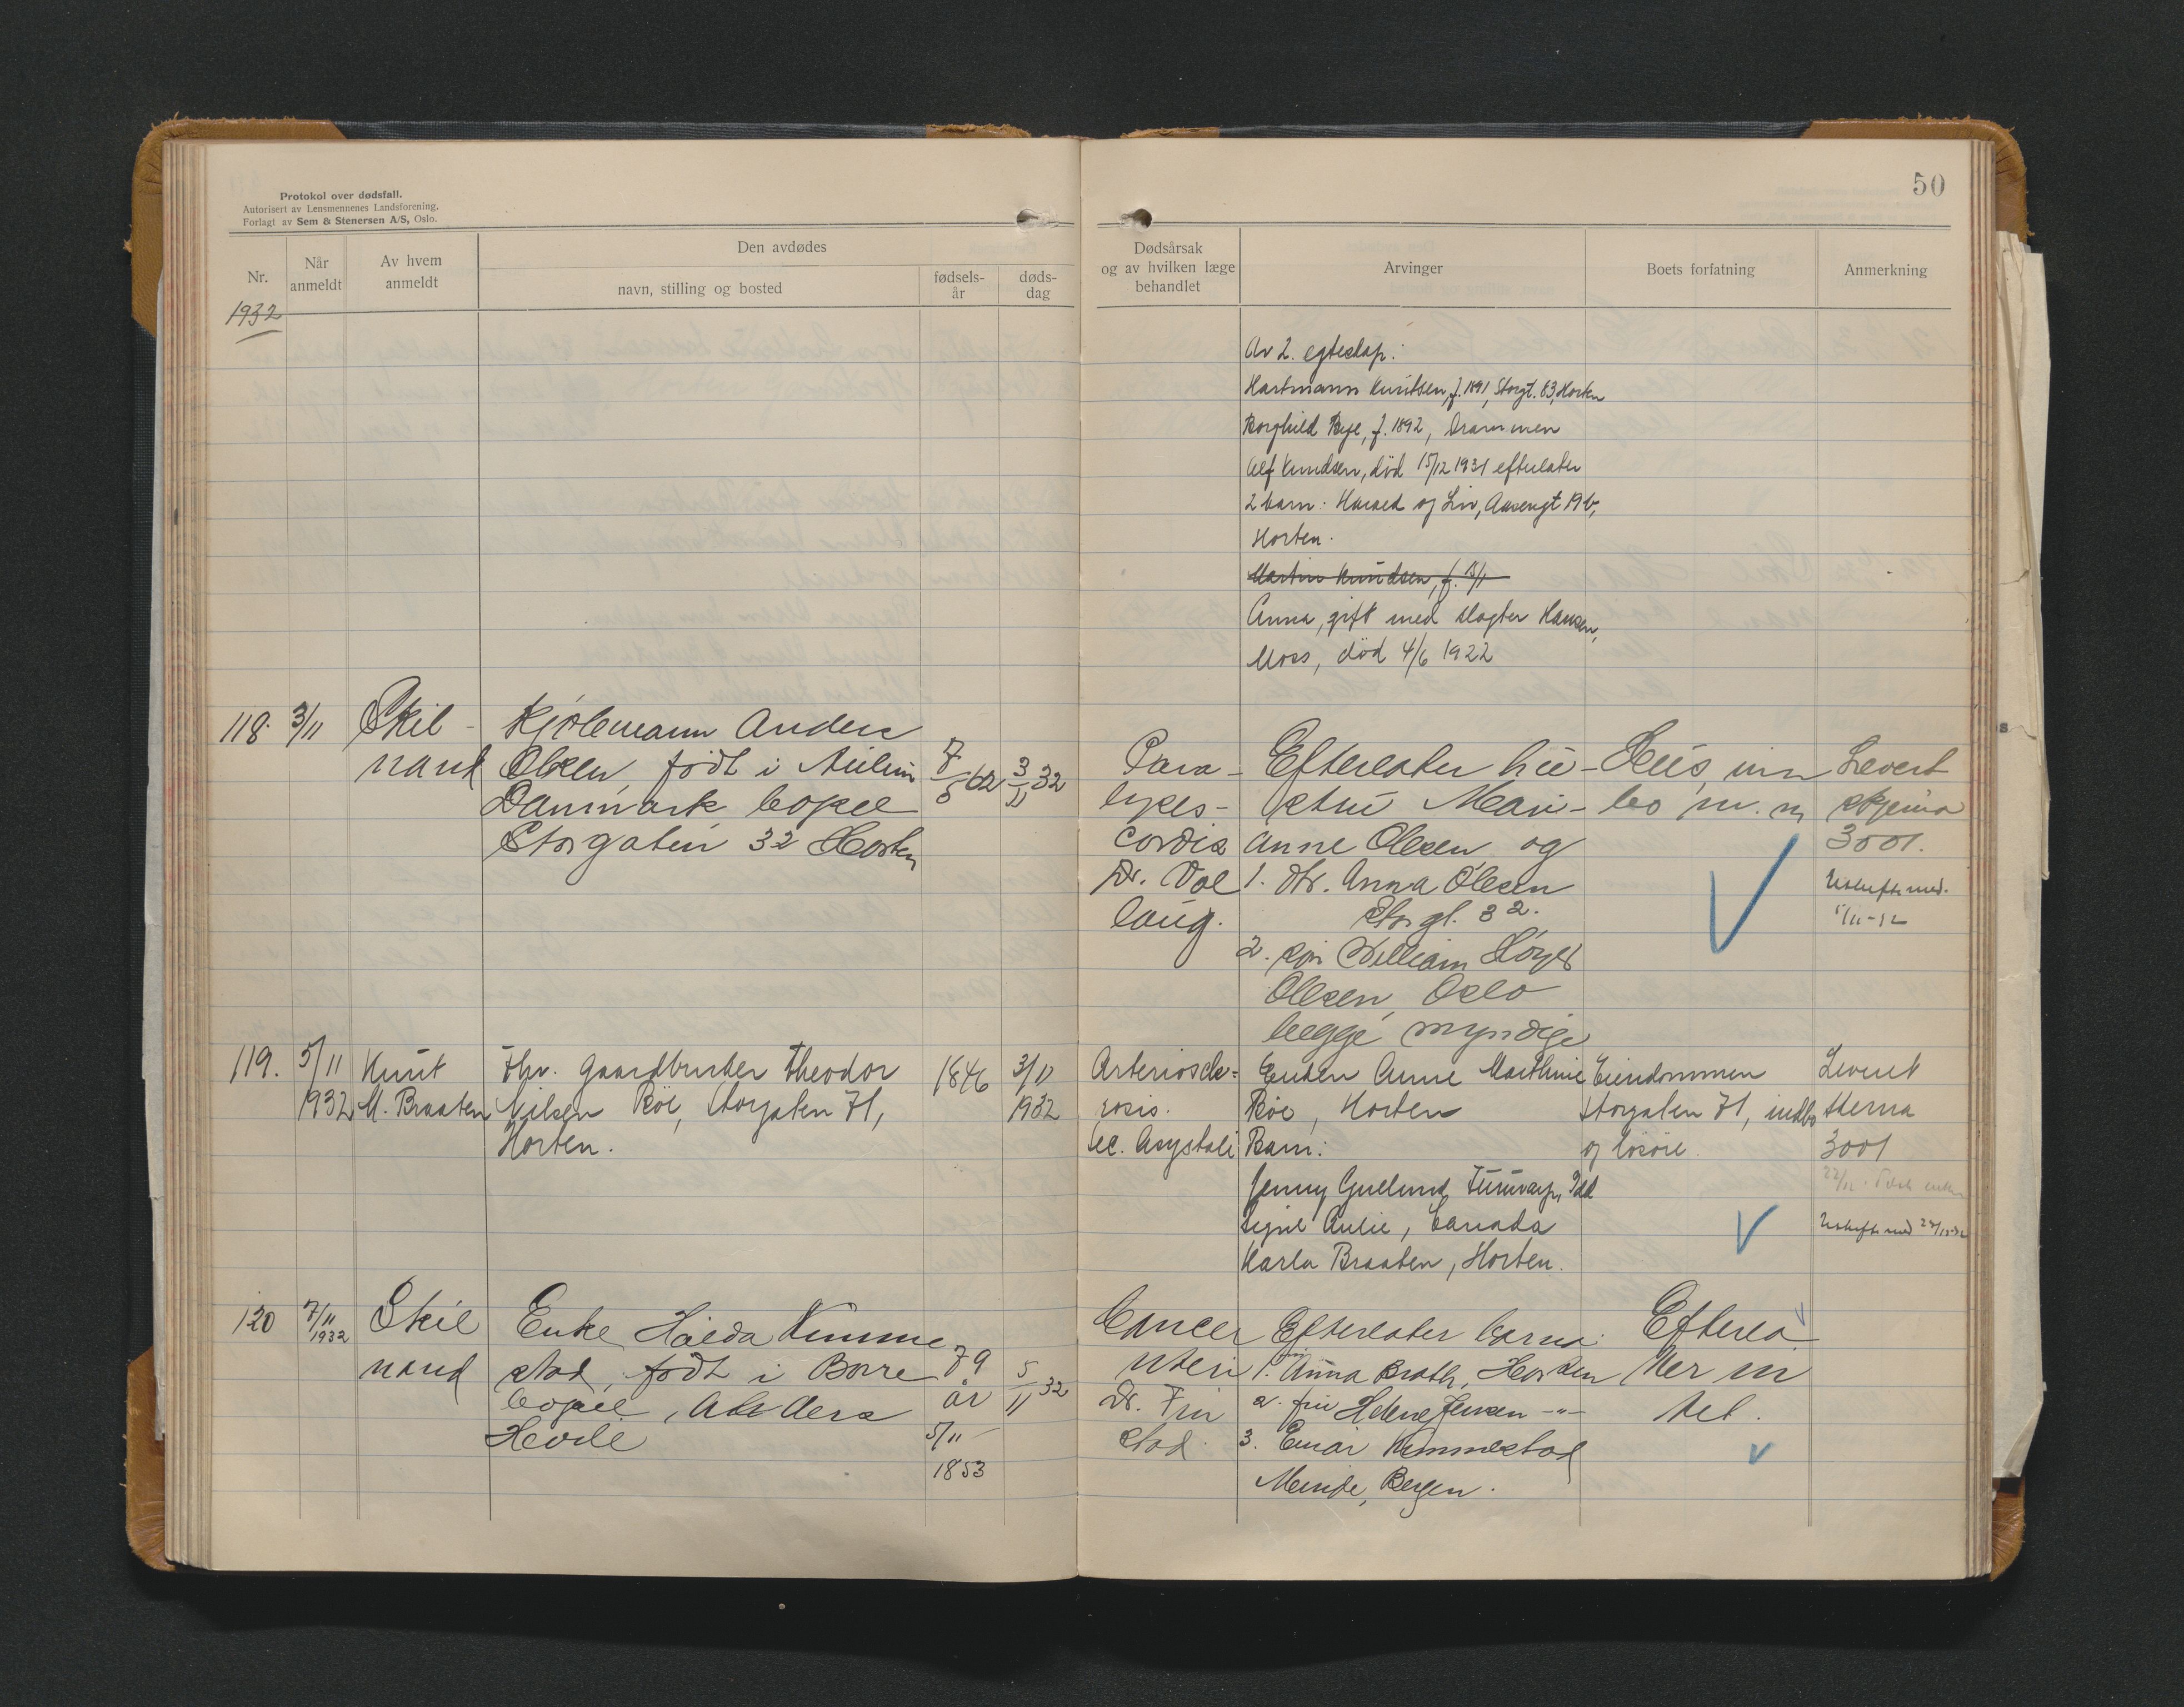 Protokol over dødsfall.
Autorisert av Lensmennenes Landsforening.
Forlagt av Sem & Stenersen A/S, Oslo.
50
Nr.
Når anmeldt
Av hvem anmeldt
Den avdødes
navn, stilling og bosted
fødsels-år
døds-dag
Dødsårsak
og av hvilken læge
behandlet
Arvinger
Boets forfatning
Anmerkning
1932
Av 2. egteskap:
Hartmann Knutsen, f. 1891, Storgt. 83, Horten
Borghild Bye, f. 1892, Drammen
Alf Knudsen, död 15/12 1931 efterlater
2 barn: Harald og Liv, Aasengt 19b,
Horten.
Martin Knudsen, f. 15/1
Anna, gift med slagter Hansen,
Moss, död 4/6 1922
118. 3/11
Skil-
nand
Kjölemann Anders
Olsen, födt i
Danmark bopel
Storgaten 32 Horten
7/5 62
3/11 32
Para-
lyses-
cordis
Dr. Dal
laug.
Efterlater hu-
stru Mari-
anne Olsen og
1. dtr. Anna Olsen
Storgt. 32.
2. sön William
Olsen, Oslo
begge myndige
Hus, inn
bo m. m
Levert
skjema
3001.
Uskiftemed.
119. 5/11
1932
Knut
M. Braaten
Fhv. gaardbruker Theodor
Nilsen Röe, Storgaten 71,
Horten.
1846
3/11
1932
Arterioscle-
rosis.
ec. Asystoli
Enken Anne Marthinie
Röe, Horten
Barn:
Jenny Gullund, Furuvarp, Idd
Signe Aulie, Canada
Karla Braaten, Horten.
Eiendommen
Storgaten 71, indbo
og lösöre.
Levert
skema
3001
120
7/11
1932
Skil
nand
Enke Hulda Kimme
stad, födt i Borre
bopel,
79
år
5/11
1853
5/11 32
Cancer
uteri
Dr. Fin
stad.
Efterlater barna:
1. Anna Brath, Horten
2. fru Helene Jensen -"-
3. Einar Kimmestad
Minde, Bergen.
Efterla
ter in
tet.